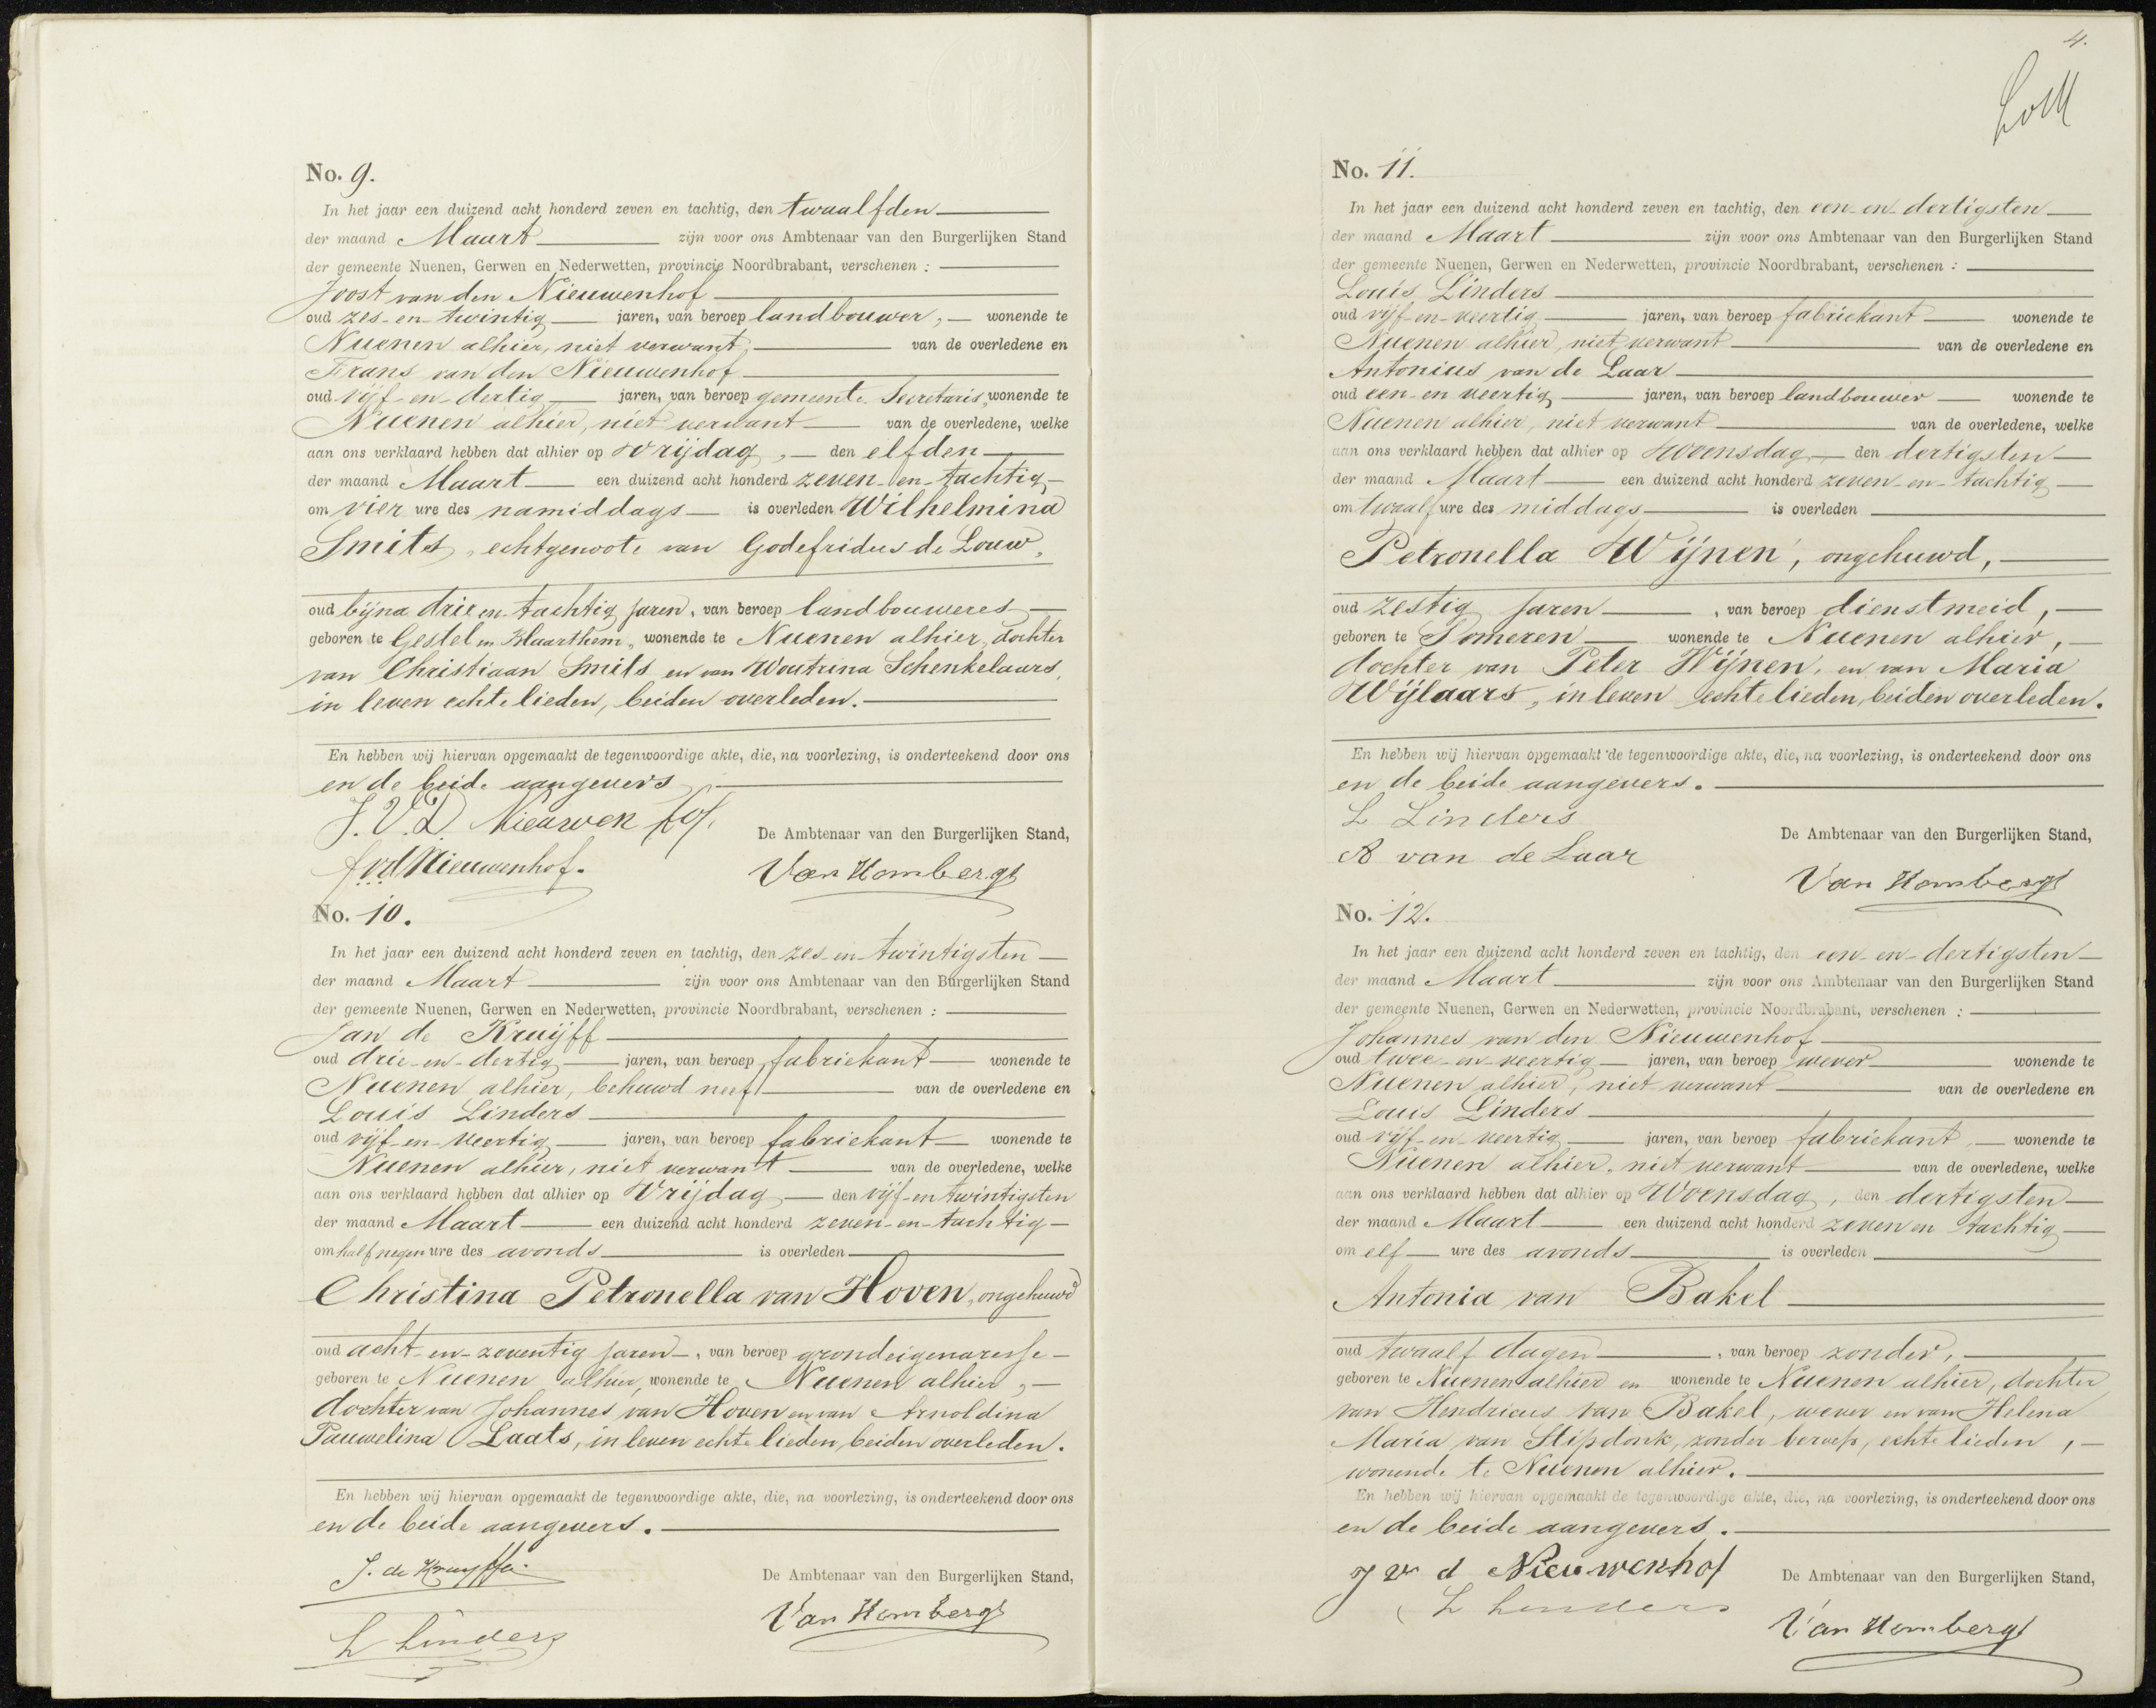 No. 9.
In het jaar een duizend acht honderd zeven en tachtig, den twaalfden
der maand Maart zijn voor ons Ambtenaar van den Burgerlijken Stand
der gemeente Nuenen, Gerwen en Nederwetten, provincie Noordbrabant, verschenen :
Joost van den Nieuwenhof
oud zes-en-twintig jaren, van beroep landbouwer, wonende te
Nuenen alhier, niet verwant, van de overledene en
Frans van den Nieuwenhof
oud vijf-en-dertig jaren, van beroep gemeente Secretaris, wonende te
Nuenen alhier, niet verwant van de overledene, welke
aan ons verklaard hebben dat alhier op vrijdag, den elfden
der maand Maart een duizend acht honderd zeven-en-tachtig
om vier ure des namiddags is overleden Wilhelmina
Smits, echtgenoote van Godefridus de Louw,
oud bijna drie en tachtig jaren, van beroep landbouweres
geboren te Gestel en Blaarthem, wonende te Nuenen alhier, dochter
van Christiaan Smits en van Woutrina Schenkelaars,
in leven echte lieden, beiden overleden.
En hebben wij hiervan opgemaakt de tegenwoordige akte, die, na voorlezing, is onderteekend door ons
en de beide aangevers
J. V. D. Nieuwen hof.
De Ambtenaar van den Burgerlijken Stand,
F v d Nieuwenhof.
Van Hombergh
No. 10.
In het jaar een duizend acht honderd zeven en tachtig, den zes-en-twintigsten
der maand Maart zijn voor ons Ambtenaar van den Burgerlijken Stand
der gemeente Nuenen, Gerwen en Nederwetten, provincie Noordbrabant, verschenen :
Jan de Kruijff
oud drie-en-dertig jaren, van beroep fabriekant wonende te
Nuenen alhier, behuwd neef van de overledene en
Louis Linders
oud vijf-en-veertig jaren, van beroep fabriekant wonende te
Nuenen alhier, niet verwant van de overledene, welke
aan ons verklaard hebben dat alhier op Vrijdag den vijf-en twintigsten
der maand Maart een duizend acht honderd zeven-en-tachtig
om half negen ure des avonds is overleden
Christina Petronella van Hoven, ongehuwd
oud acht-en-zeventig jaren, van beroep grondeigenaresse
geboren te Nuenen alhier, wonende te Nuenen alhier,
dochter van Johannes van Hoven en van Arnoldina
Pauwelina Laats, in leven echte lieden, beiden overleden.
En hebben wij hiervan opgemaakt de tegenwoordige akte, die, na voorlezing, is onderteekend door ons
en de beide aangevers.
J. de Kruyff
De Ambtenaar van den Burgerlijken Stand,
Van Hombergh
L Linders
4.
No. 11.
In het jaar een duizend acht honderd zeven en tachtig, den een-en-dertigsten
der maand Maart zijn voor ons Ambtenaar van den Burgerlijken Stand
der gemeente Nuenen, Gerwen en Nederwetten, provincie Noordbrabant, verschenen :
Louis Linders
oud vijf-en-veertig jaren, van beroep fabriekant wonende te
Nuenen alhier, niet verwant van de overledene en
Antonius van de Laar
oud een-en veertig jaren, van beroep landbouwer wonende te
Nuenen alhier, niet verwant van de overledene, welke
aan ons verklaard hebben dat alhier op Woensdag den dertigsten
der maand Maart een duizend acht honderd zeven-en-tachtig
om twaalf ure des middags is overleden
Petronella Wijnen, ongehuwd,
oud zestig jaren, van beroep dienstmeid,
geboren te Someren wonende te Nuenen alhier,
dochter van Peter Wijnen, en van Maria
Wijlaars, in leven echte lieden, beiden overleden.
En hebben wij hiervan opgemaakt de tegenwoordige akte, die, na voorlezing, is onderteekend door ons
en de beide aangevers.
L Linders
De Ambtenaar van den Burgerlijken Stand,
A van de Laar
Van Hombergh
No. 12.
In het jaar een duizend acht honderd zeven en tachtig, den een-en-dertigsten
der maand Maart zijn voor ons Ambtenaar van den Burgerlijken Stand
der gemeente Nuenen, Gerwen en Nederwetten, provincie Noordbrabant, verschenen :
Johannes van den Nieuwenhof
oud twee-en-veertig jaren, van beroep wever wonende te
Nuenen alhier, niet verwant van de overledene en
Louis Linders
oud vijf-en-veertig jaren, van beroep fabriekant, wonende te
Nuenen alhier, niet verwant van de overledene, welke
aan ons verklaard hebben dat alhier op Woensdag, den dertigsten
der maand Maart een duizend acht honderd zeven en tachtig
om elf ure des avonds is overleden
Antonia van Bakel
oud twaalf dagen, van beroep zonder,
geboren te Nuenen alhier en wonende te Nuenen alhier, dochter
van Hendricus van Bakel, wever en van Helena
Maria van Stipdonk, zonder beroep, echte lieden,
wonende te Nuenen alhier.
En hebben wij hiervan opgemaakt de tegenwoordige akte, die, na voorlezing, is onderteekend door ons
en de beide aangevers.
J v d Nieuwenhof
De Ambtenaar van den Burgerlijken Stand,
L Linders
Van Hombergh